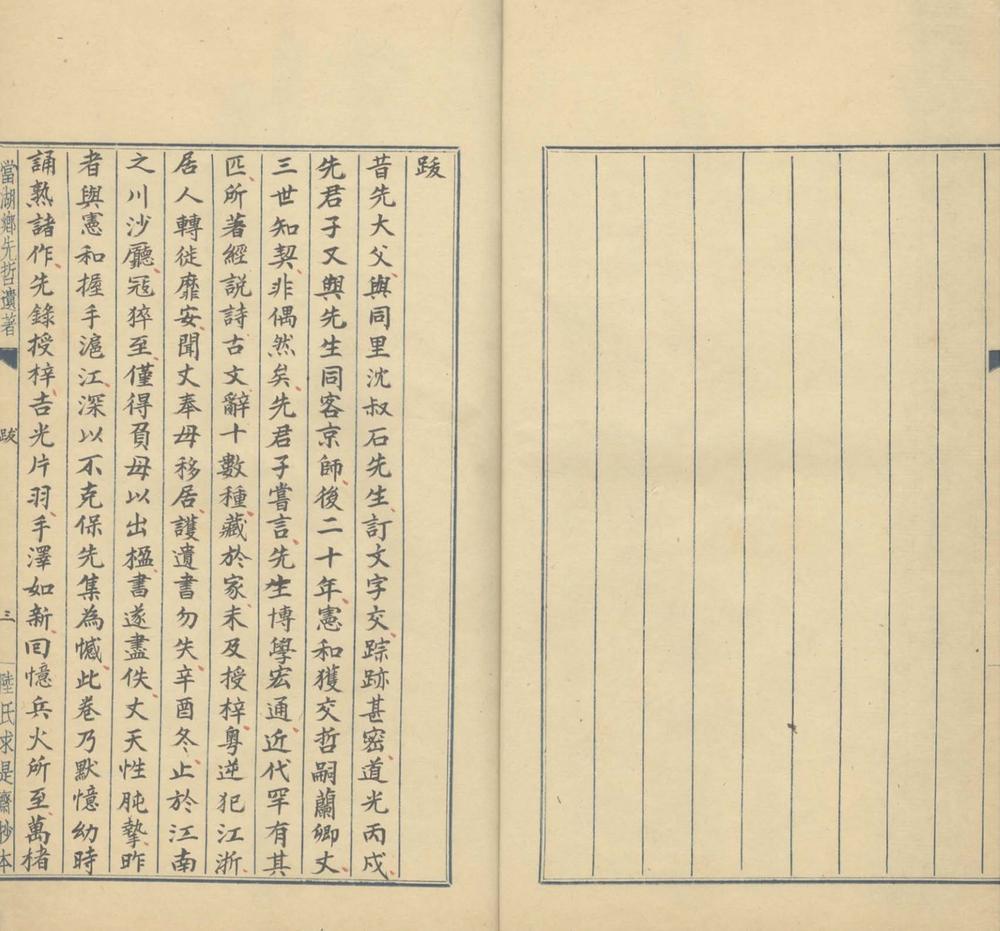 跋
昔先大父與同里沈叔石先生訂文字交踪跡甚密道光丙戍
先君子又與先生同客京師後二十年憲和獲交哲嗣蘭卿丈
三世知契非偶然矣先君子嘗言先生博學宏通近代罕有其
匹所著經說詩古文辭十數種藏於家未及授梓粵逆犯江浙
居人轉徙靡安聞丈奉母移居護遺書勿失辛酉冬止於江南
之川沙廳寇猝至僅得負母以出楹書遂盡佚丈天性肫摯昨
者與憲和握手滬江深以不克保先集為憾此卷乃默憶幼時
誦熟諸作先錄授梓吉光片羽手澤如新回憶兵火所至萬楮
當湖鄉先哲遺著
跋
三
陸氏求是齋抄本